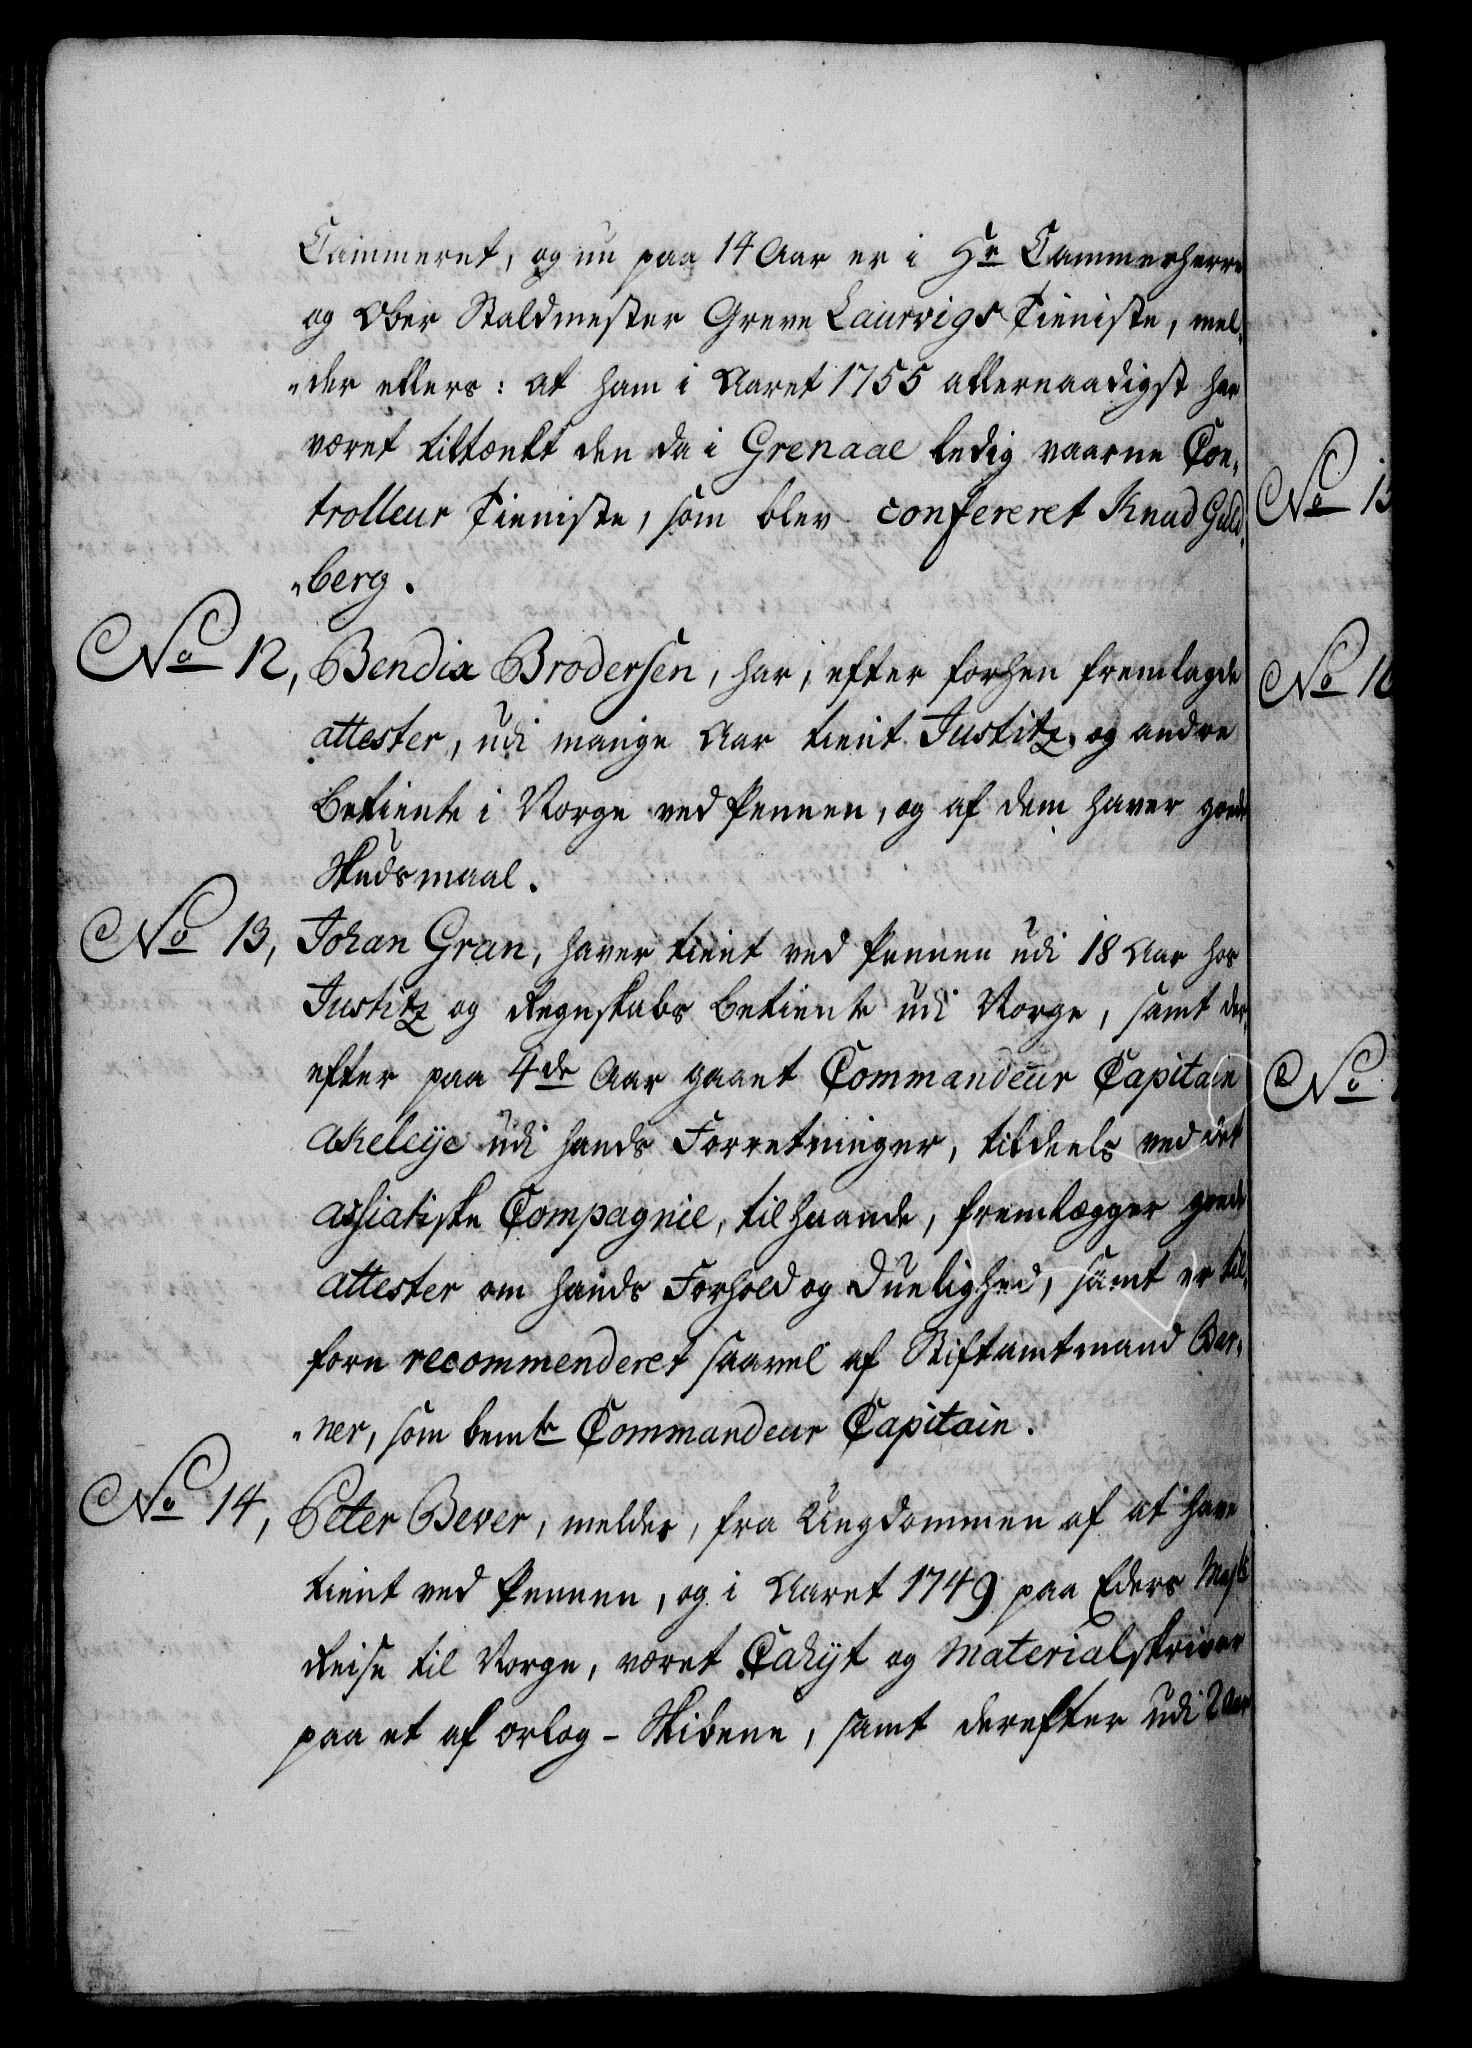 Cammeret, og nu paa 14 Aar er i Hr Cammerherre
og Ober Staldmester Greve Laurvigs Tieniste, mel„
„der ellers: at ham i Aaret 1755 allernaadigst har
været tiltænkt den da i Grenaae ledig vaarne Con„
trolleur Tieniste, som blev confereret Knud Guld„
„berg.
No 12, Bendix Brodersen, har, efter forhen fremlagde
attester, udi mange Aar tient Justitz og andre
Betiente i Norge ved Pennen, og af dem haver gode
Skudsmaal.
No 13, Johan Gran, haver tient ved Pennen udi 18 Aar hos
Justitz og Regnskabs Betiente udi Norge, samt der„
efter paa 4de Aar gaaet Commandeur Capitain
Akeleÿe udi hands Forretninger, tildeels ved det
assiatiske Compagnie, tilhaande, fremlægger gode
attester om hands Forhold og Duelighed, samt er til„
forn recommenderet saavel af Stiftamtmand Bar„
„ner, som bemte Commandeur Capitain.
No 14, Peter Bever, melder, fra Ungdommen af at have
tient ved Pennen, og i Aaret 1749 paa Eders Mayts
Reise til Norge, været Cahÿt og Materialskriver
paa et af orlog-Skibene, samt derefter udi 2 Aar
No 15
No 16
No